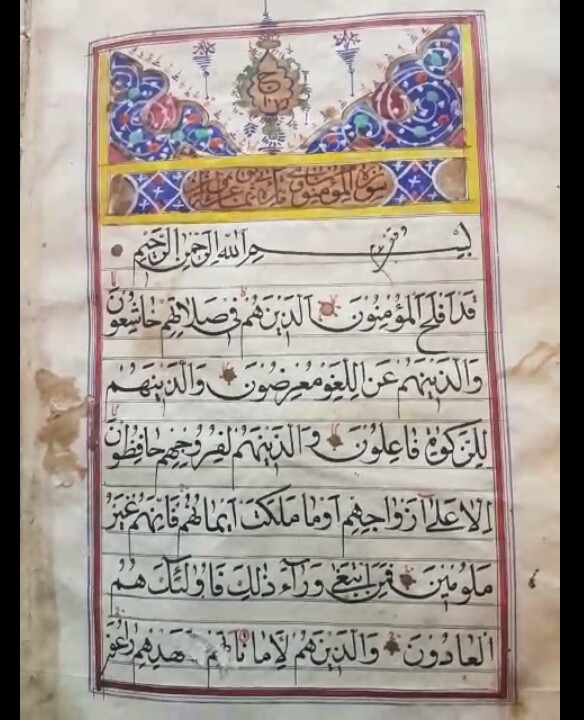 سورة المؤمنون
بسم الله الرحمن الرحيم
قد افلح المؤمنون الذين هم فى صلاتهم خاشعون
والذينهم عن اللغو معرضون والذينهم
للزكوة فاعلون والذينهم لفروجهم حافظون
الا على ازواجهم اوما ملكت ايمانهم فانهم غير
ملومين فمن ابتغى ورآء ذلك فاولئك هم
العادون والذين هم لاماناتهم وعهدهم راعون